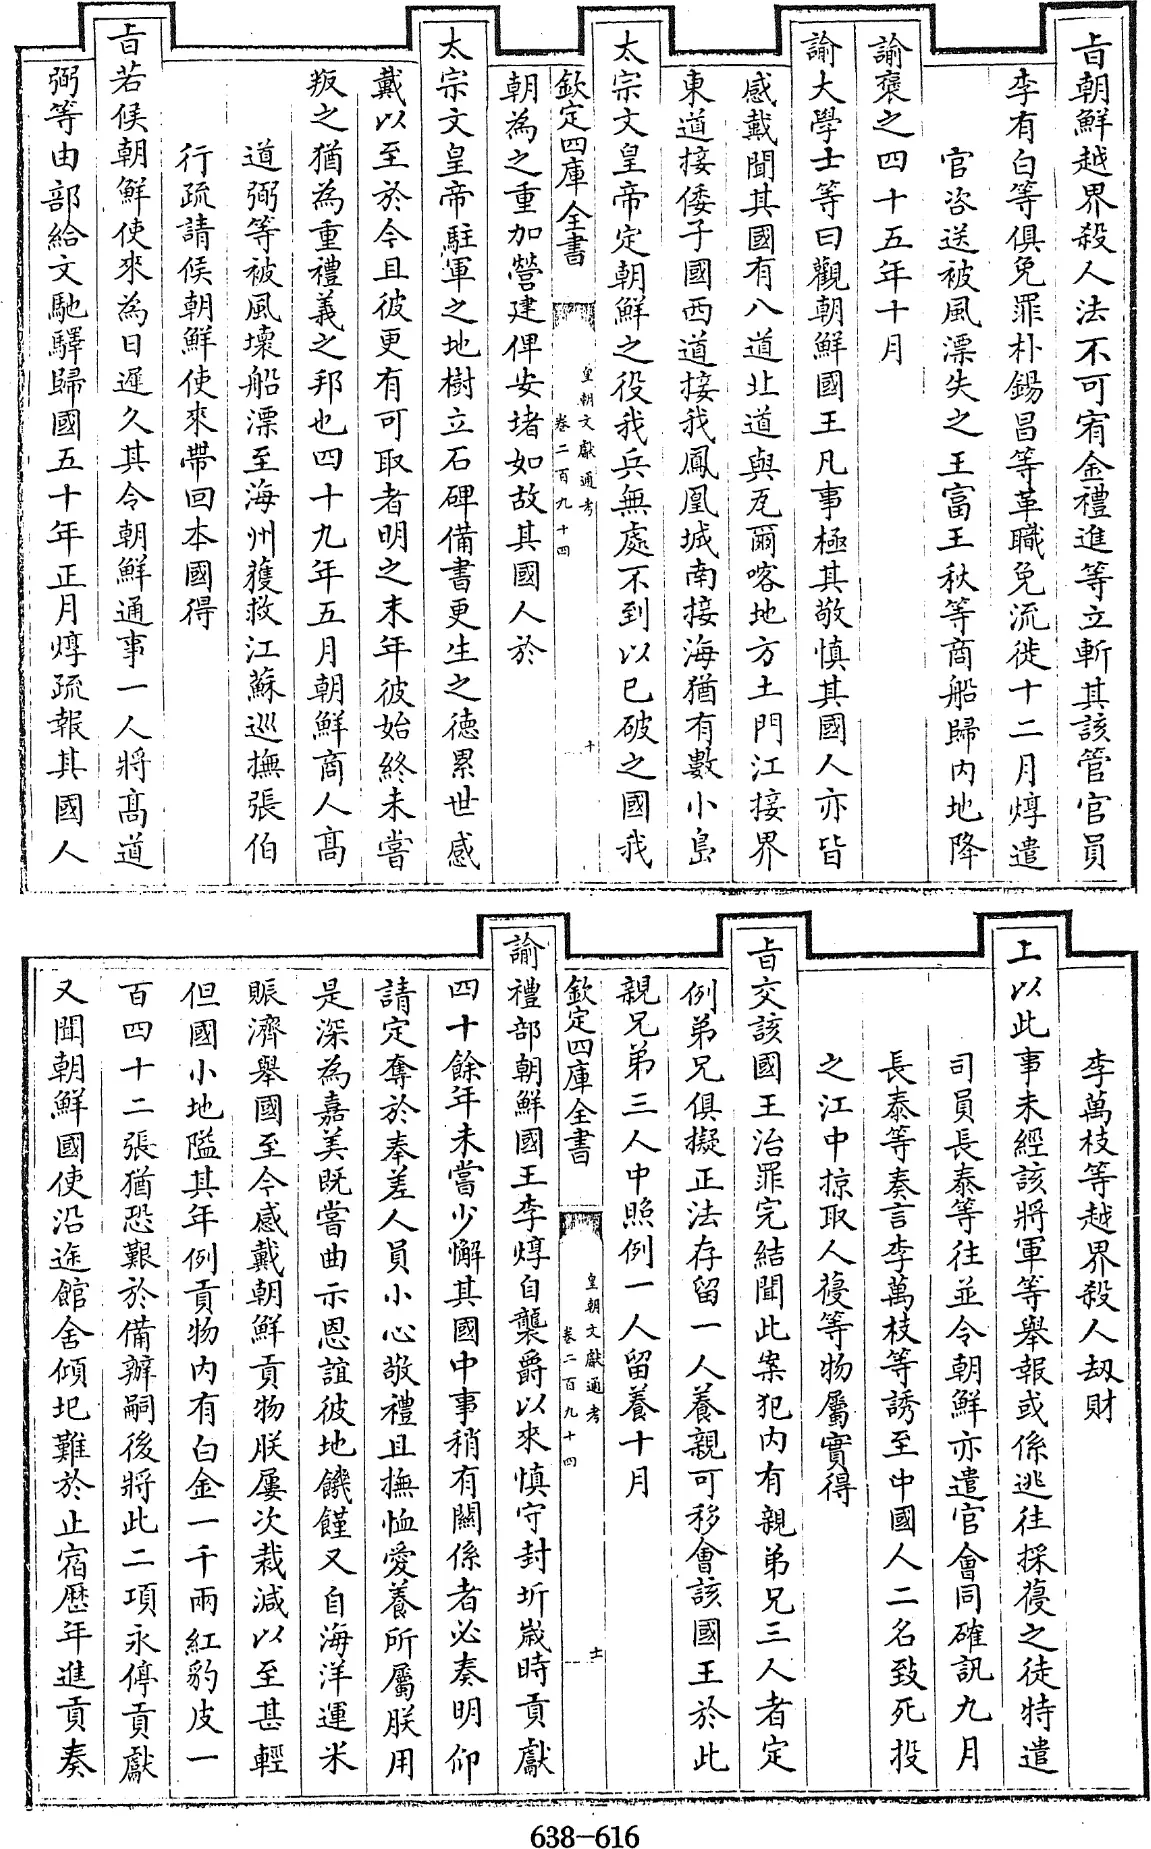 旨朝鮮越界殺人法不可宥金禮進等立斬其該管官員
李有白等俱免罪朴錫昌等革職免流徙十二月焞遣
官咨送被風漂失之王富王秋等商船歸内地降
諭褒之四十五年十月
諭大學士等曰觀朝鮮國王凡事極其敬慎其國人亦皆
感戴聞其國有八道北道與瓦爾喀地方土門江接界
東道接倭子國西道接我鳳凰城南接海猶有數小島
太宗文皇帝定朝鮮之役我兵無處不到以已破之國我
欽定四庫全書
皇朝文獻通考
卷二百九十四
十
朝為之重加營建俾安堵如故其國人於
太宗文皇帝駐軍之地樹立石碑備書更生之德累世感
戴以至於今且彼更有可取者明之末年彼始終未嘗
叛之猶為重禮義之邦也四十九年五月朝鮮商人高
道弼等被風壞船漂至海州獲救江蘇巡撫張伯
行疏請候朝鮮使來帶回本國得
旨若候朝鮮使來為日遲久其令朝鮮通事一人將高道
弼等由部給文馳驛歸國五十年正月焞疏報其國人
李萬枝等越界殺人刼財
上以此事未經該將軍等舉報或係逃往採葠之徒特遣
司員長泰等往並令朝鮮亦遣官會同確訊九月
長泰等奏言李萬枝等誘至中國人二名致死投
之江中掠取人葠等物屬實得
旨交該國王治罪完結聞此案犯内有親弟兄三人者定
例弟兄俱擬正法存留一人養親可移會該國王於此
親兄弟三人中照例一人留養十月
欽定四庫全書
皇朝文獻通考
卷二百九十四
十一
諭禮部朝鮮國王李焞自襲爵以來慎守封圻歲時貢獻
四十餘年未嘗少懈其國中事稍有關係者必奏明仰
請定奪於奉差人員小心敬禮且撫恤愛養所屬朕用
是深為嘉美既嘗曲示恩誼彼地饑饉又自海洋運米
賑濟舉國至今感戴朝鮮貢物朕屢次裁減以至甚輕
但國小地隘其年例貢物内有白金一千兩紅豹皮一
百四十二張猶恐艱於備辦嗣後將此二項永停貢獻
又聞朝鮮國使沿途館舍傾圮難於止宿歴年進貢奏
638-616